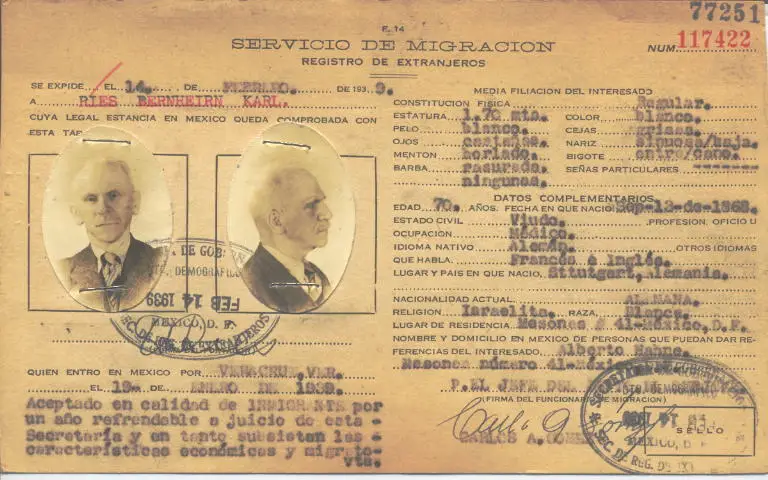 77251
F. 14
SERVICIO DE MIGRACION
NUM. 117422
REGISTRO DE EXTRANJEROS
SE EXPIDE EL 14. DE FEBRERO. DE 193 9.
A RIES BERNHEIRN KARL.
CUYA LEGAL ESTANCIA EN MEXICO QUEDA COMPROBADA CON
ESTA TAR
FEB 14 1939
MEXICO, D. F.
QUIEN ENTRO EN MEXICO POR VERACRUZ, VER.
EL 19- DE ENERO DE 1939.
Aceptado en calidad de INMIGRANTE por
un año refrendable a juicio de esta -
Secretaría y en tanto subsistan las -
características económicas y migrato-
MEDIA FILIACION DEL INTERESADO
CONSTITUCION FISICA Regular.
ESTATURA 1.70 mts. COLOR blanco.
PELO blanco. CEJAS grises.
OJOS castaños. NARIZ sinuosa/baja.
MENTON BIGOTE entrecano.
BARBA rasurada. SEÑAS PARTICULARES -------
ningunas.
DATOS COMPLEMENTARIOS
EDAD 70. AÑOS. FECHA EN QUE NACIO Sep-13-de-1868.
ESTADO CIVIL Viudo. PROFESION, OFICIO U
OCUPACION Médico.
IDIOMA NATIVO Alemán. OTROS IDIOMAS
QUE HABLA. Francés e Inglés.
LUGAR Y PAIS EN QUE NACIO. Sttutgart, Alemania.
NACIONALIDAD ACTUAL ALEMANA.
RELIGION Israelita. RAZA, Blanca.
LUGAR DE RESIDENCIA Mesones # 41-México, D. F.
NOMBRE Y DOMICILIO EN MEXICO DE PERSONAS QUE PUEDAN DAR RE-
FERENCIAS DEL INTERESADO, Alberto
Mesones número 41-México
P. EL JEFE DEL
(FIRMA DEL FUNCIONARIO DE MIGRACION)
CARLOS A. GOMEZ
SELLO
MEXICO, D. F.